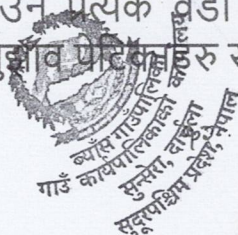 प्रत्येक वडा
ब्याँस गाउँपालिका
गाउँ कार्यपालिकाको कार्यालय
सुन्सेरा, दार्चुला
सुदूरपश्चिम प्रदेश, नेपाल